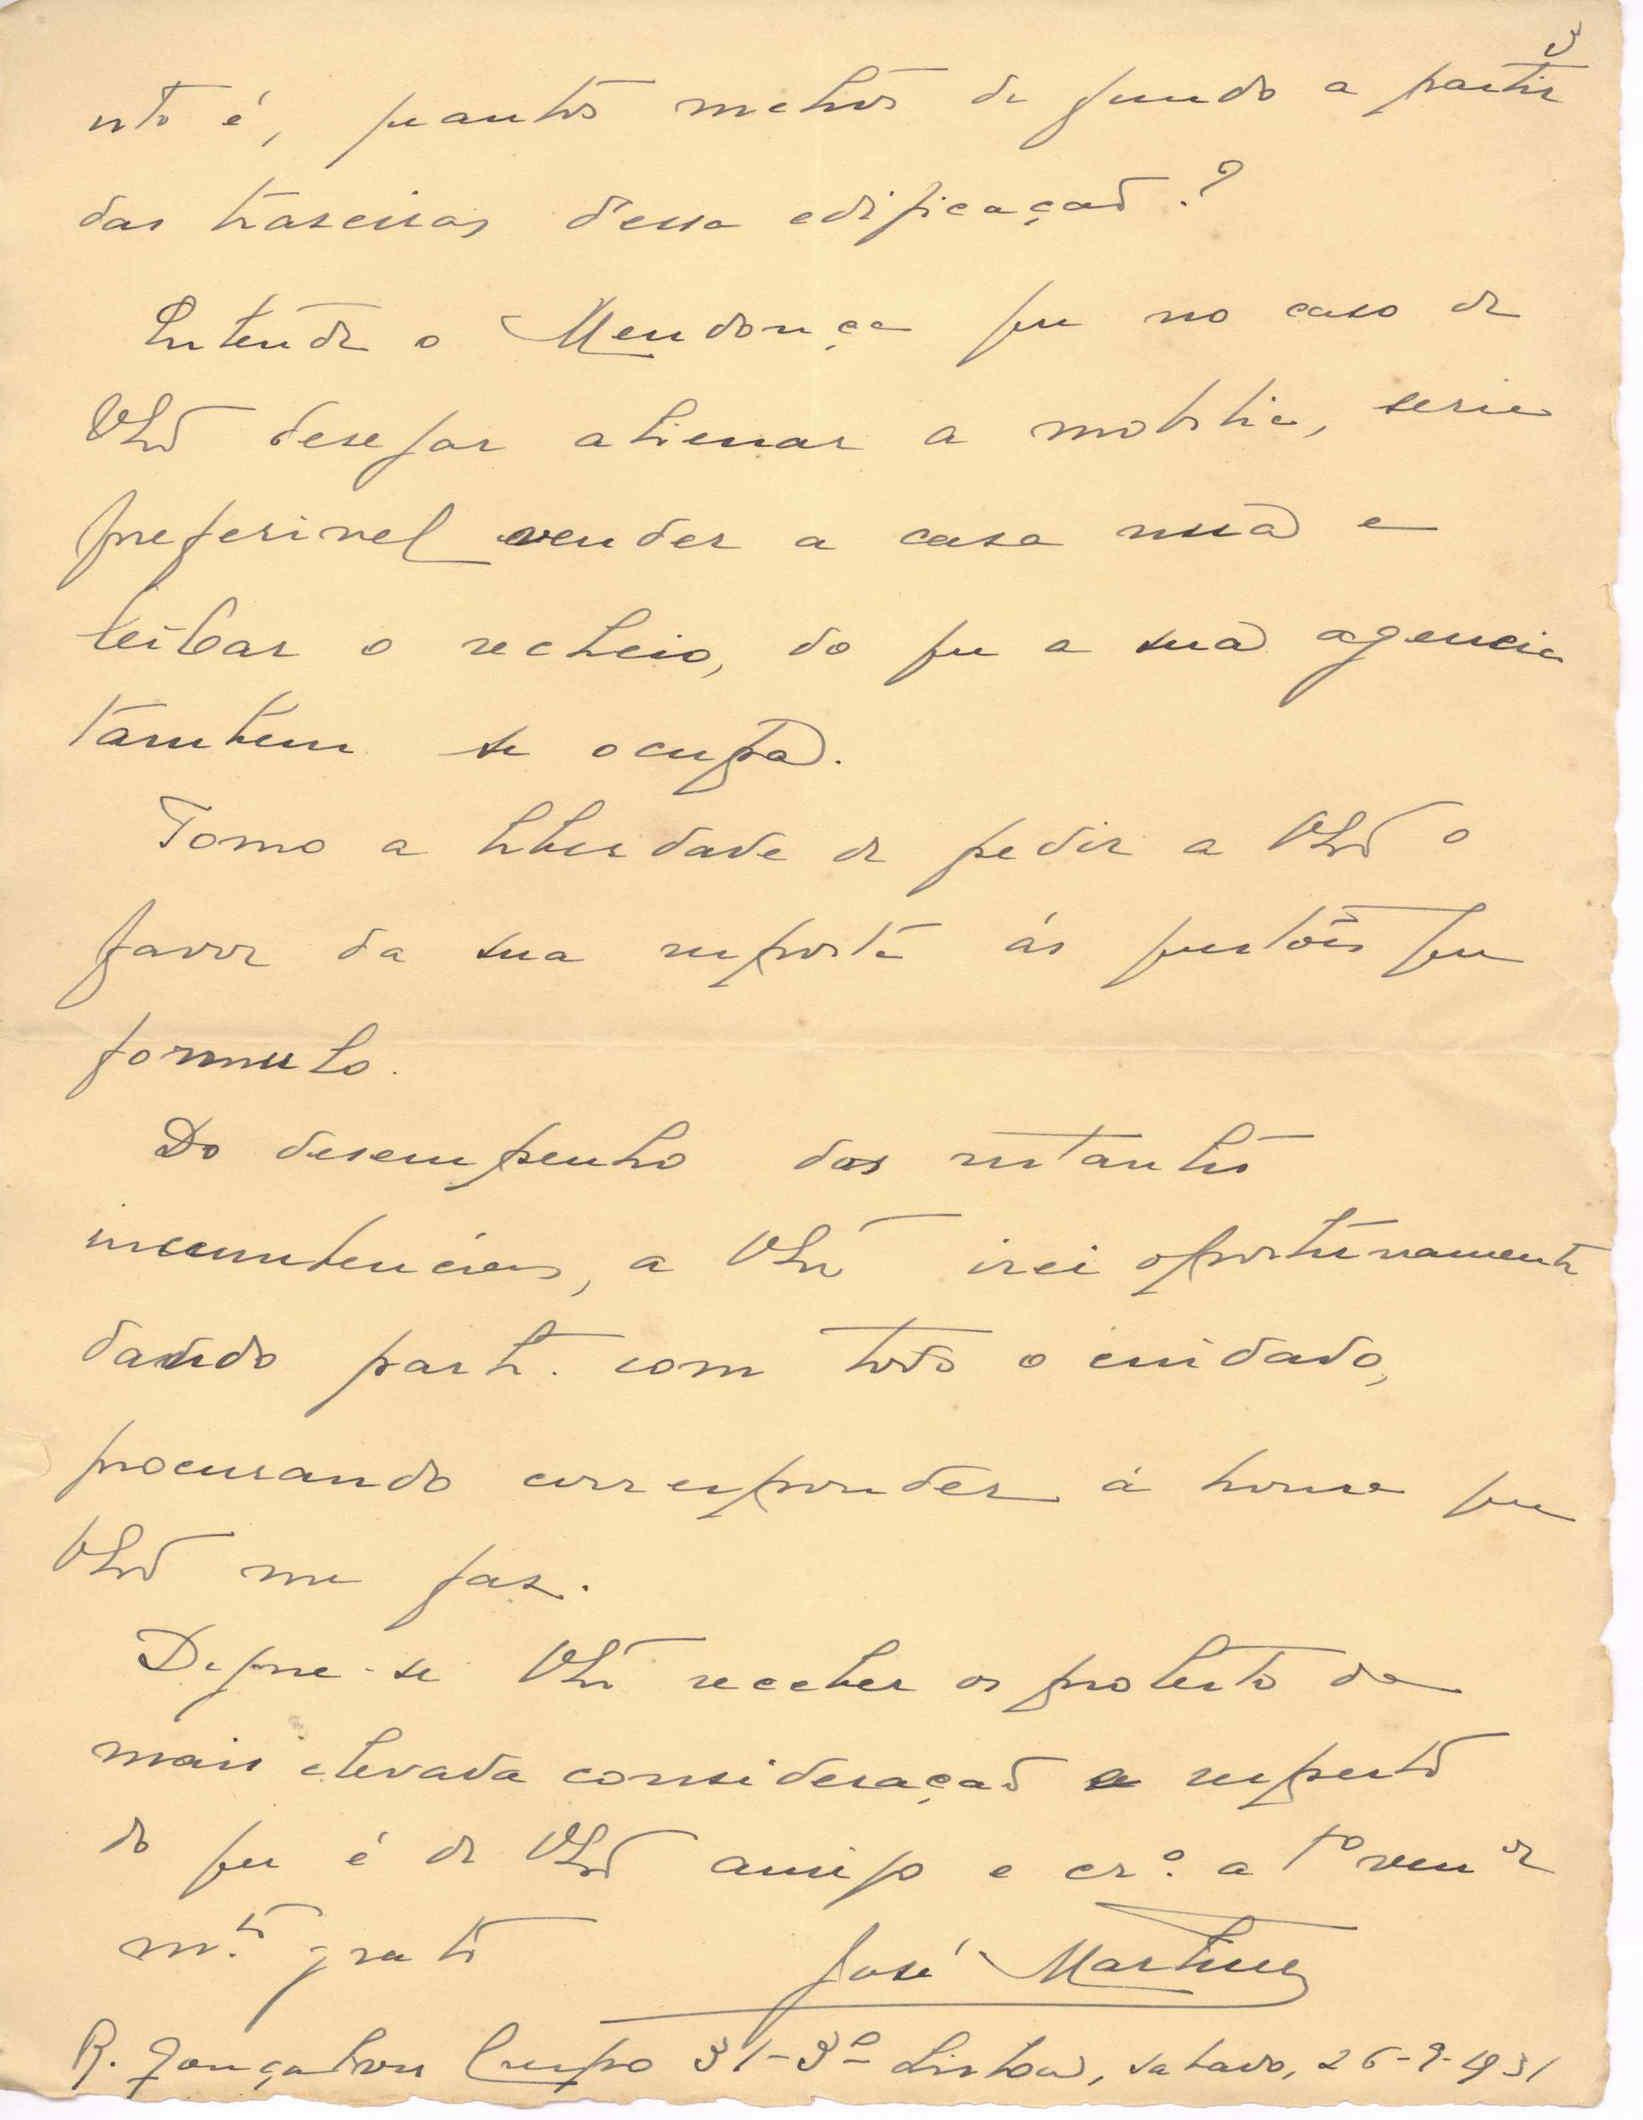 3
isto é, quantos metros de fundo a partir
das trazeiras d'essa edificação?
Entende o Mendonça que no caso de
desejar alienar a mobilia, seria
preferivel vender a casa nua e
leiloar o recheio, do que a sua agencia
tambem se ocupa.
Tomo a liberdade de pedir a o
favor da sua resposta ás questões que
formulo.
Do desempenho das restantes
incumbencias, a irei oportunamente
dando parte com todo o cuidado,
procurando corresponder á honra que
me faz.
Digne-se receber os protestos da
mais elevada consideração e respeito
do que é de amigo e cr.º a t.º ven.dr
m.to grato José Martins
R. Gonçalves Crespo 31-3º- Lisboa, sabado, 26-9-1931